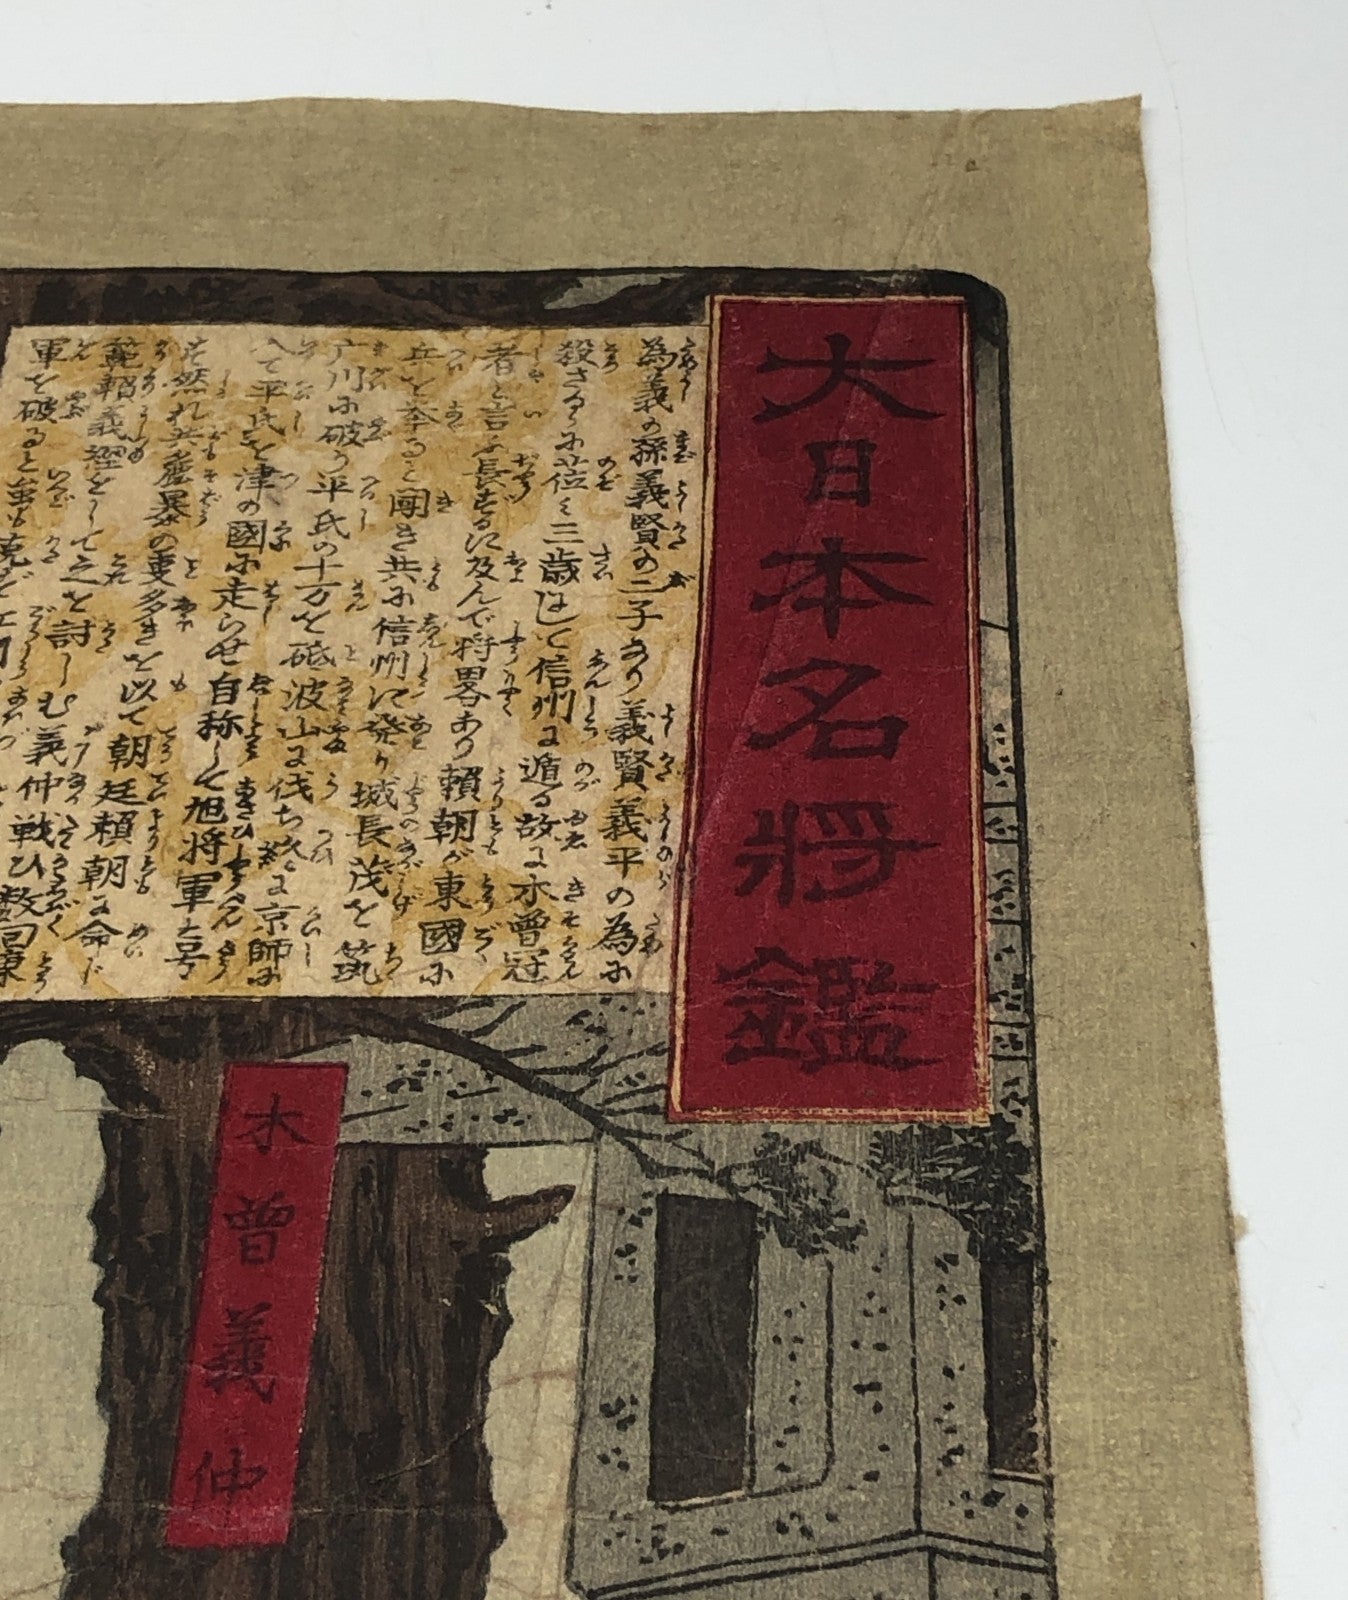 大日本名將鑑
為義の孫義賢の二子あり義賢義平の為に
殺さるに位ミ三歳にして信州に遁る故に木曽冠
者と言ふ長ずるに及んで将畧あり頼朝が東國に
兵を奉ると聞き共に信州に発り城長茂を筑
广川に破り平氏の十万を砥波山に伐ち終に京師に
入て平氏を津の國に走らせ自称して旭将軍と号
す然れ共麁暴の叓多きを以て朝廷頼朝に命じ
範頼義經をして之を討しむ義仲戦ひ数回東
軍を破ると虽も
木曽義仲